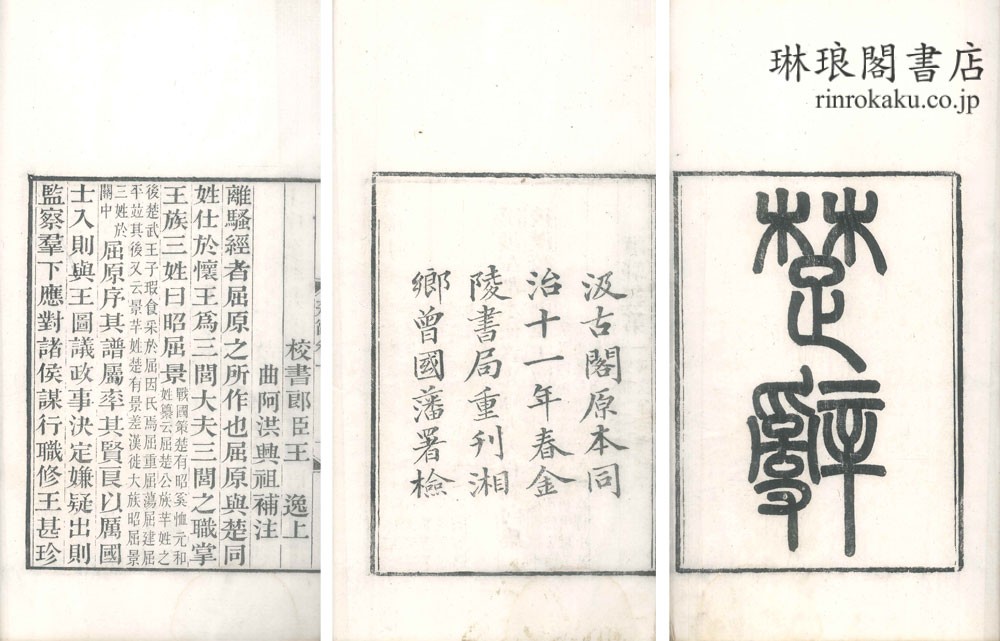 琳琅閣書店
rinrokaku.co.jp
楚辭
汲古閣原本同
治十一年春金
陵書局重刊湘
鄉曾國藩署檢
校書郎臣王 逸上
曲阿洪興祖補注
離騷經者屈原之所作也屈原與楚同
姓仕於懷王爲三閭大夫三閭之職掌
王族三姓曰昭屈景
戰國策楚有昭奚恤元和
姓纂云屈楚公族芈姓之
後楚武王子瑕食采於屈因氏焉屈重屈蕩屈建屈
平並其後又云景芈姓楚有景差漢徙大族昭屈景
三姓於
關中
屈原序其譜屬率其賢良以厲國
士入則與王圖議政事決定嫌疑出則
監察羣下應對諸侯謀行職修王甚珍